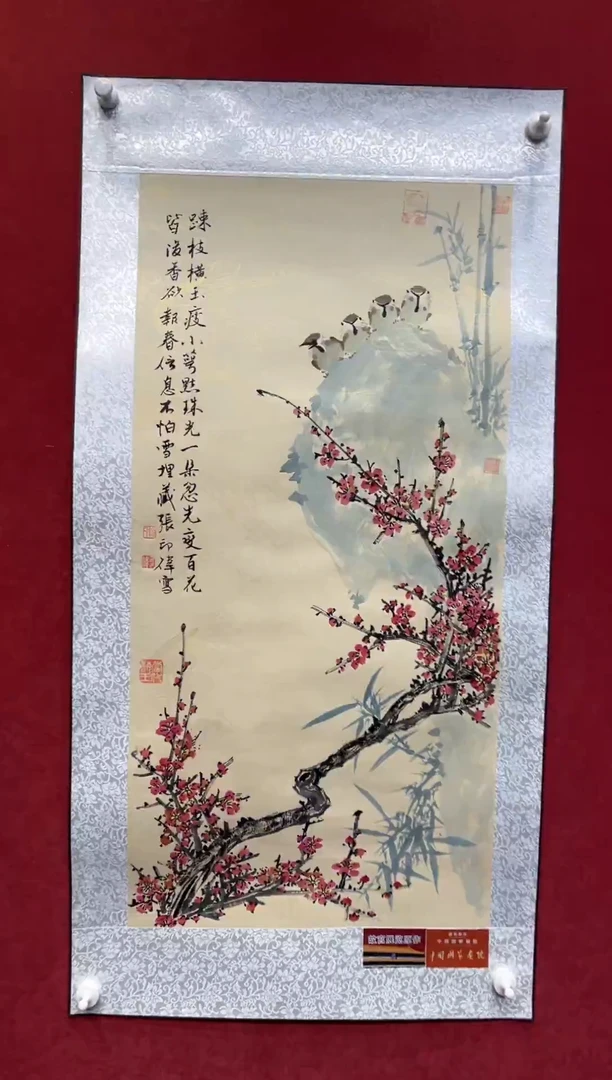 踈枝橫玉瘦小萼點珠光一朵忽先变百花
皆後香欲報春信息不怕雪埋藏張印偉寫
故宫展览原作
中国国家画院